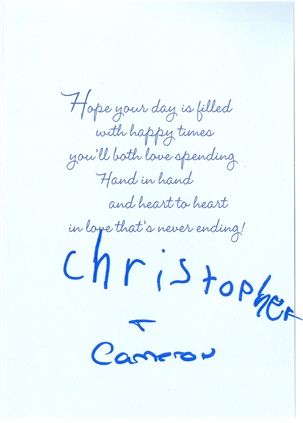 Hope your day is filled
with happy times
you'll both love spending
Hand in hand
and heart to heart
in love that's never ending!
christopher
+
Cameron